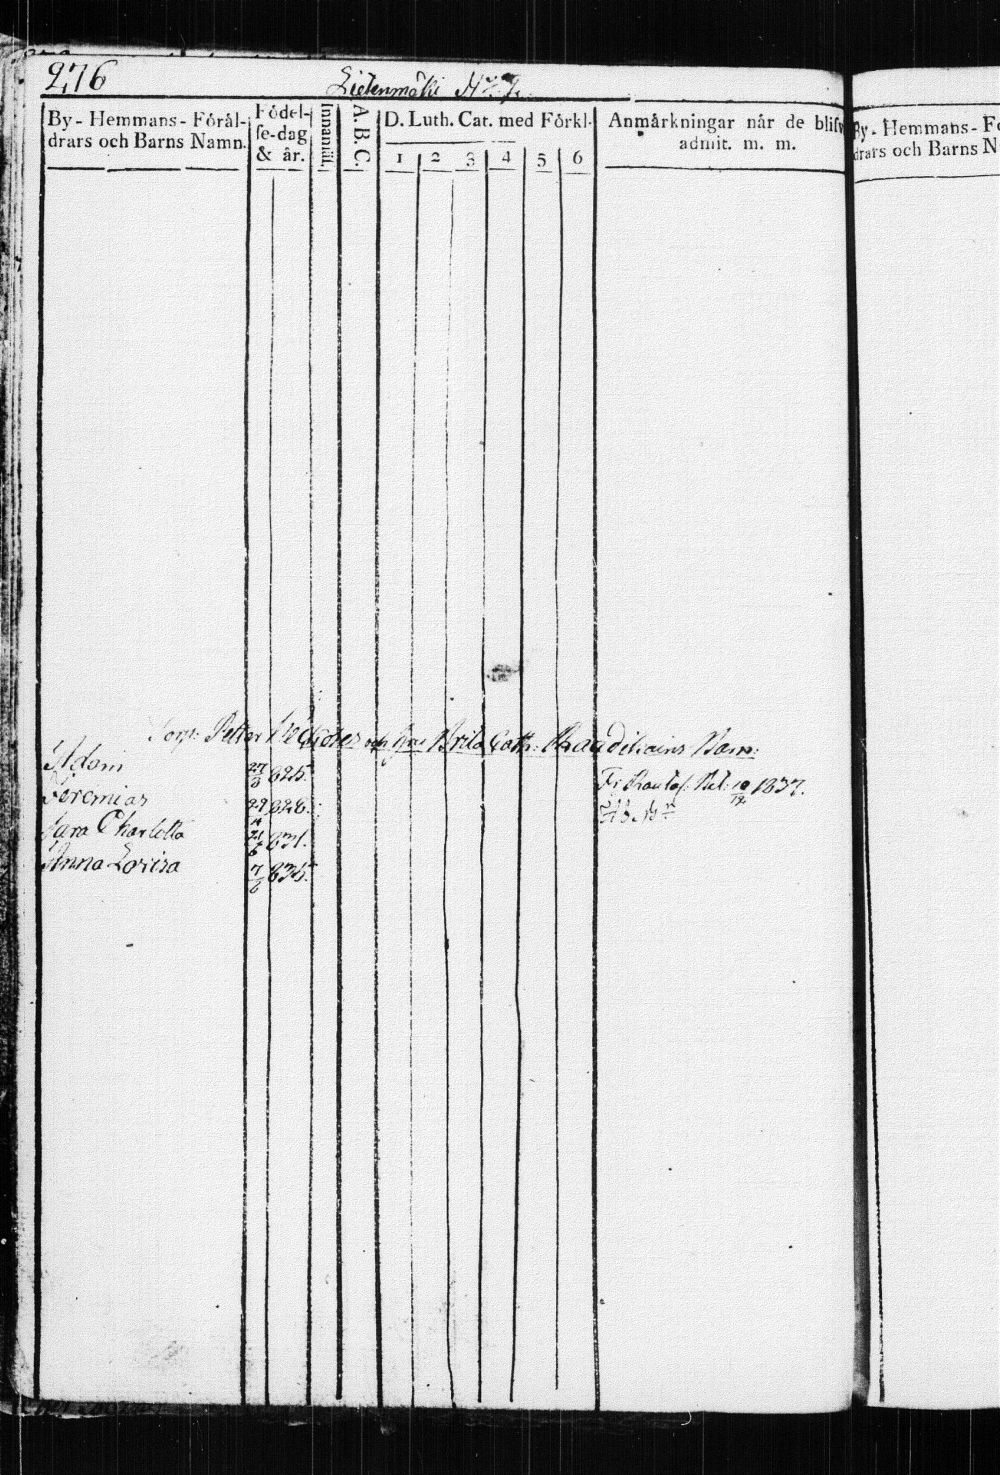 276
Lietenmäki N:o 7.
By- Hemmans- Föräl-
drars och Barns Namn.
Födel-
se-dag
& år.
Innantill.
A. B. C.
D. Luth. Cat. med Förkl.
1 2 3 4 5 6
Anmärkningar när de blifv
admit. m. m.
Petter och Brita Cath: Barn:
Adam 27/3 825.
Jeremias 29/4 828.
Sara Charlotta 21/6 831.
Anna Lovisa 7/6 835.
1837.
By- Hemmans- Fö
drars och Barns N